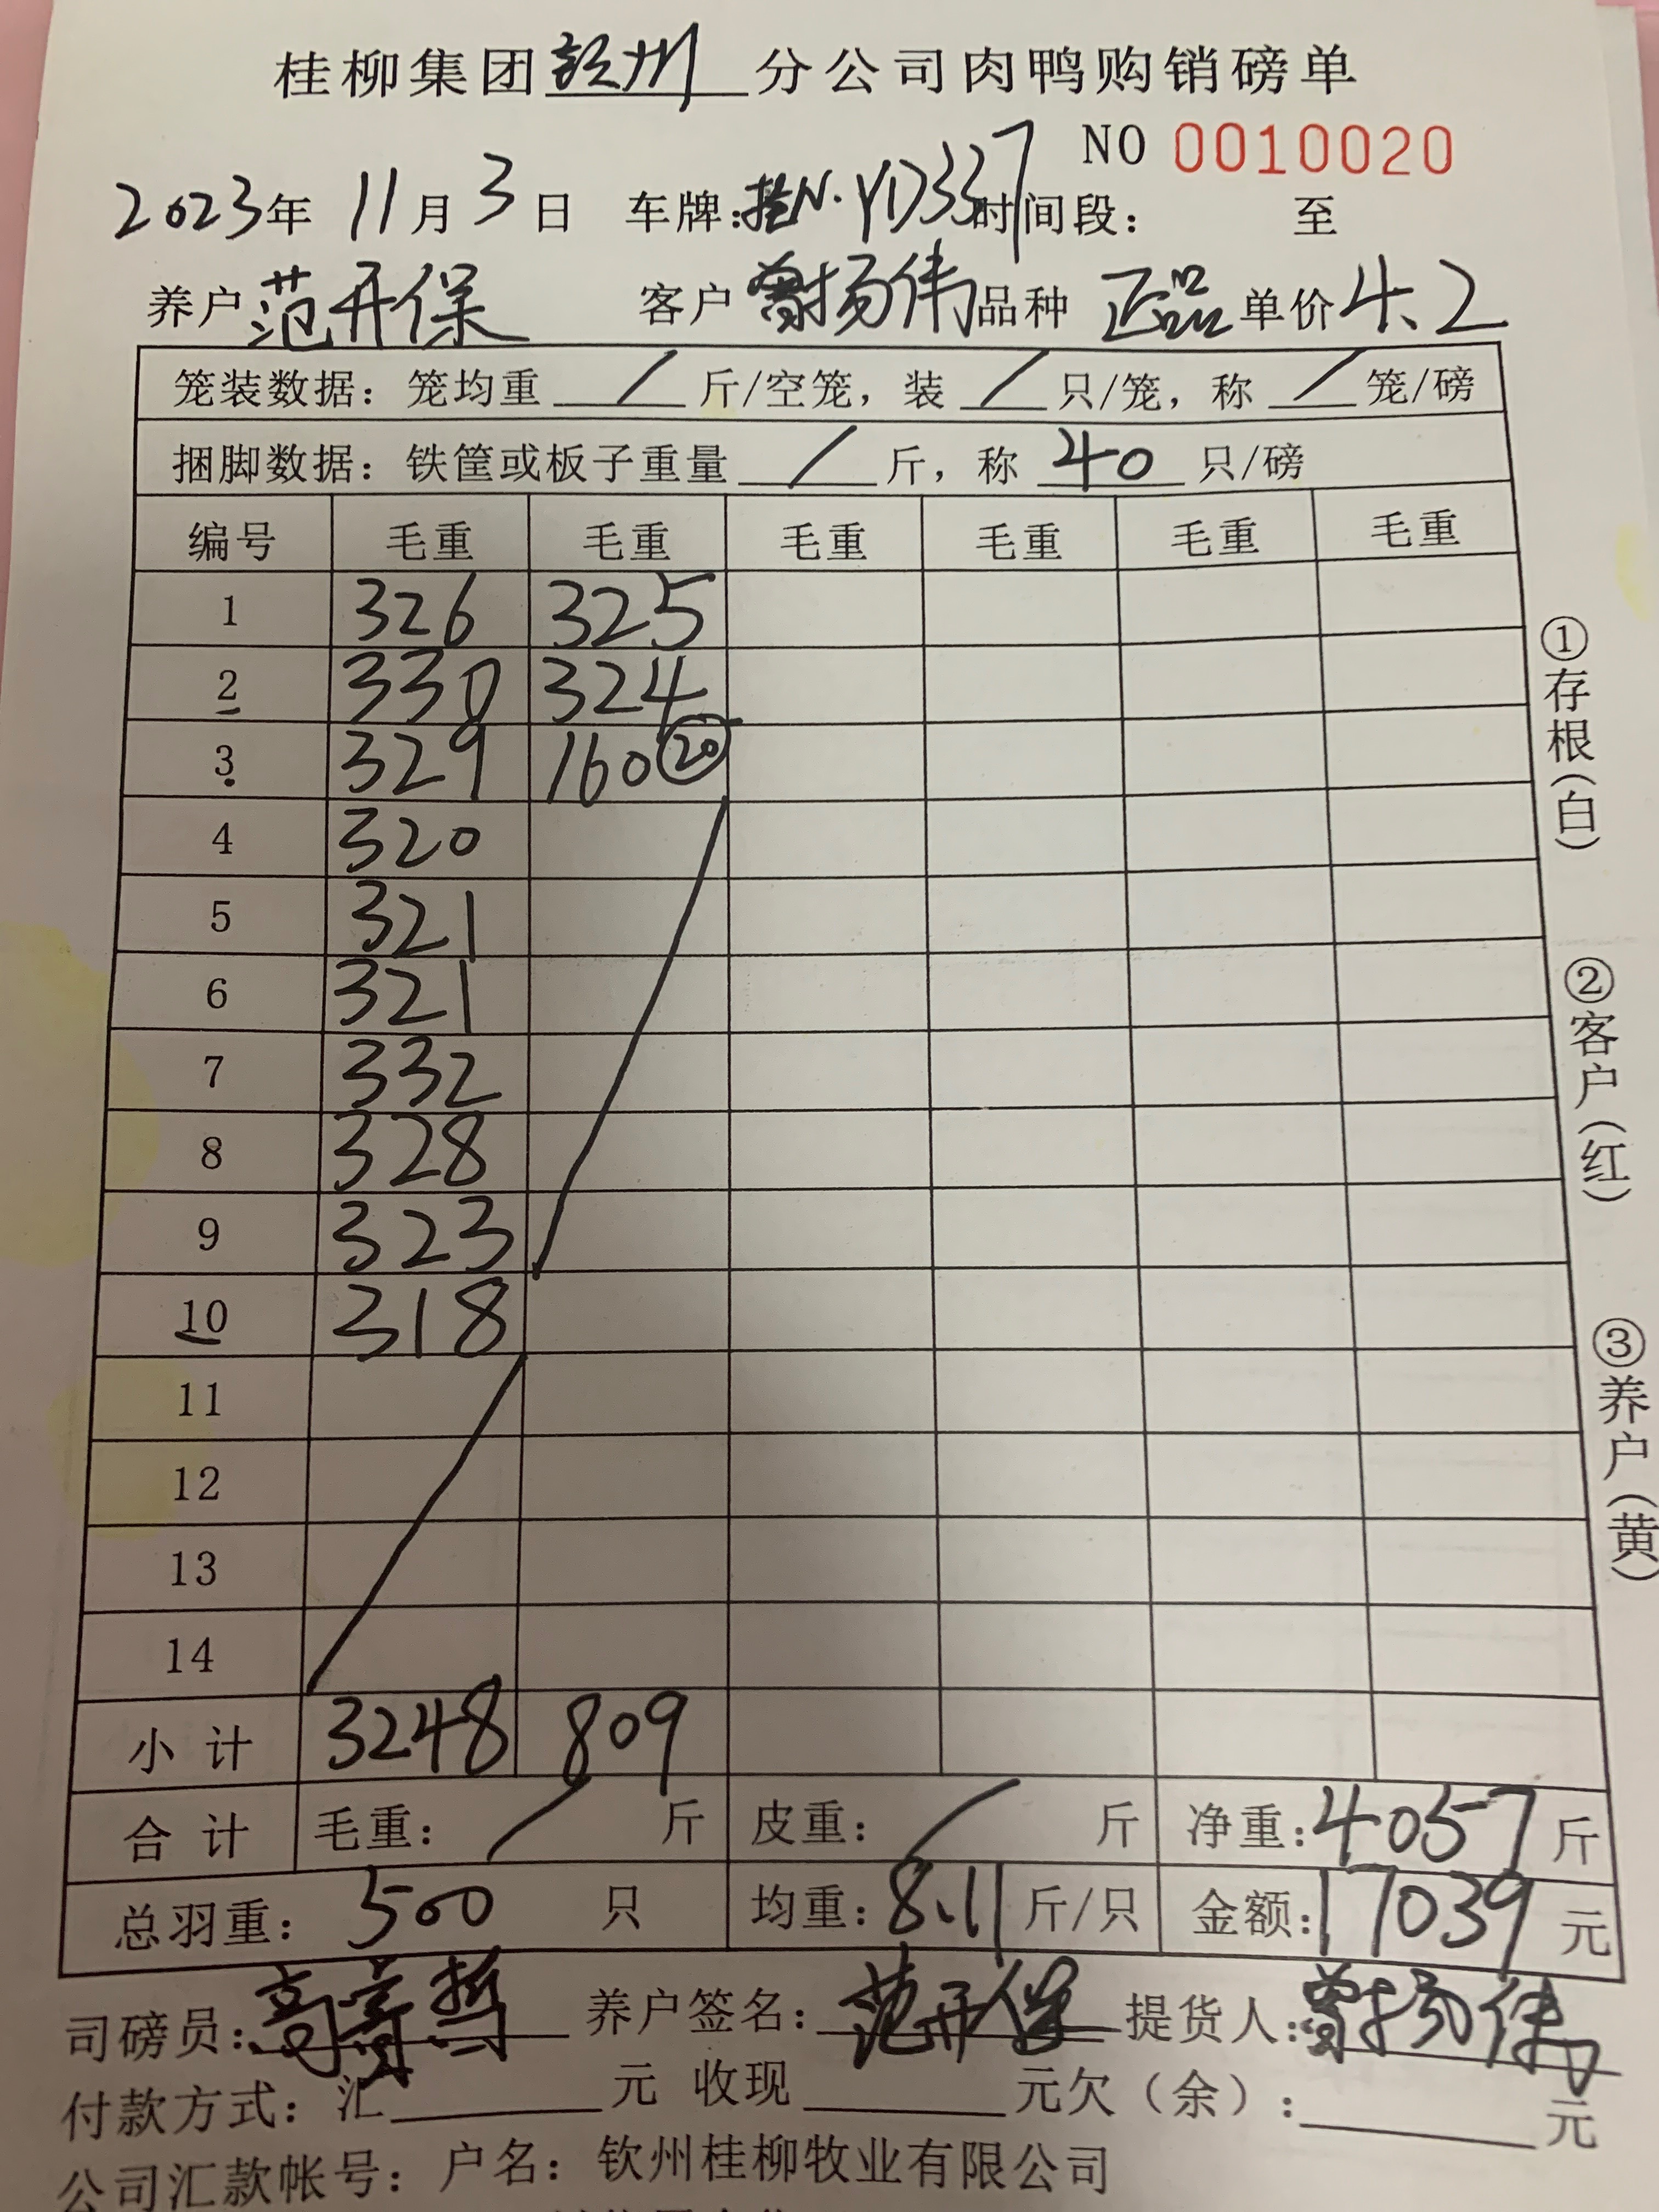 桂柳集团钦州分公司肉鸭购销磅单
NO 0010020
2023年 11月 3日 车牌:桂N·YD337 时间段: 至
养户 范开保 客户 曾扬伟 品种 正品 单价 4.2
笼装数据: 笼均重 / 斤/空笼, 装 / 只/笼, 称 / 笼/磅
捆脚数据: 铁筐或板子重量 / 斤, 称 40 只/磅
编号 毛重 毛重 毛重 毛重 毛重 毛重
1 326 325
2 330 324
3 329 160 ⑳
4 320
5 321
6 321
7 332
8 328
9 323
10 318
11
12
13
14
小计 3248 809
合计 毛重: / 斤 皮重: / 斤 净重: 4057 斤
总羽重: 500 只 均重: 8.11 斤/只 金额: 17039 元
司磅员: 养户签名: 范开保 提货人: 曾扬伟
付款方式: 汇 元 收现 元欠(余): 元
公司汇款帐号: 户名: 钦州桂柳牧业有限公司
①存根(白)
②客户(红)
③养户(黄)